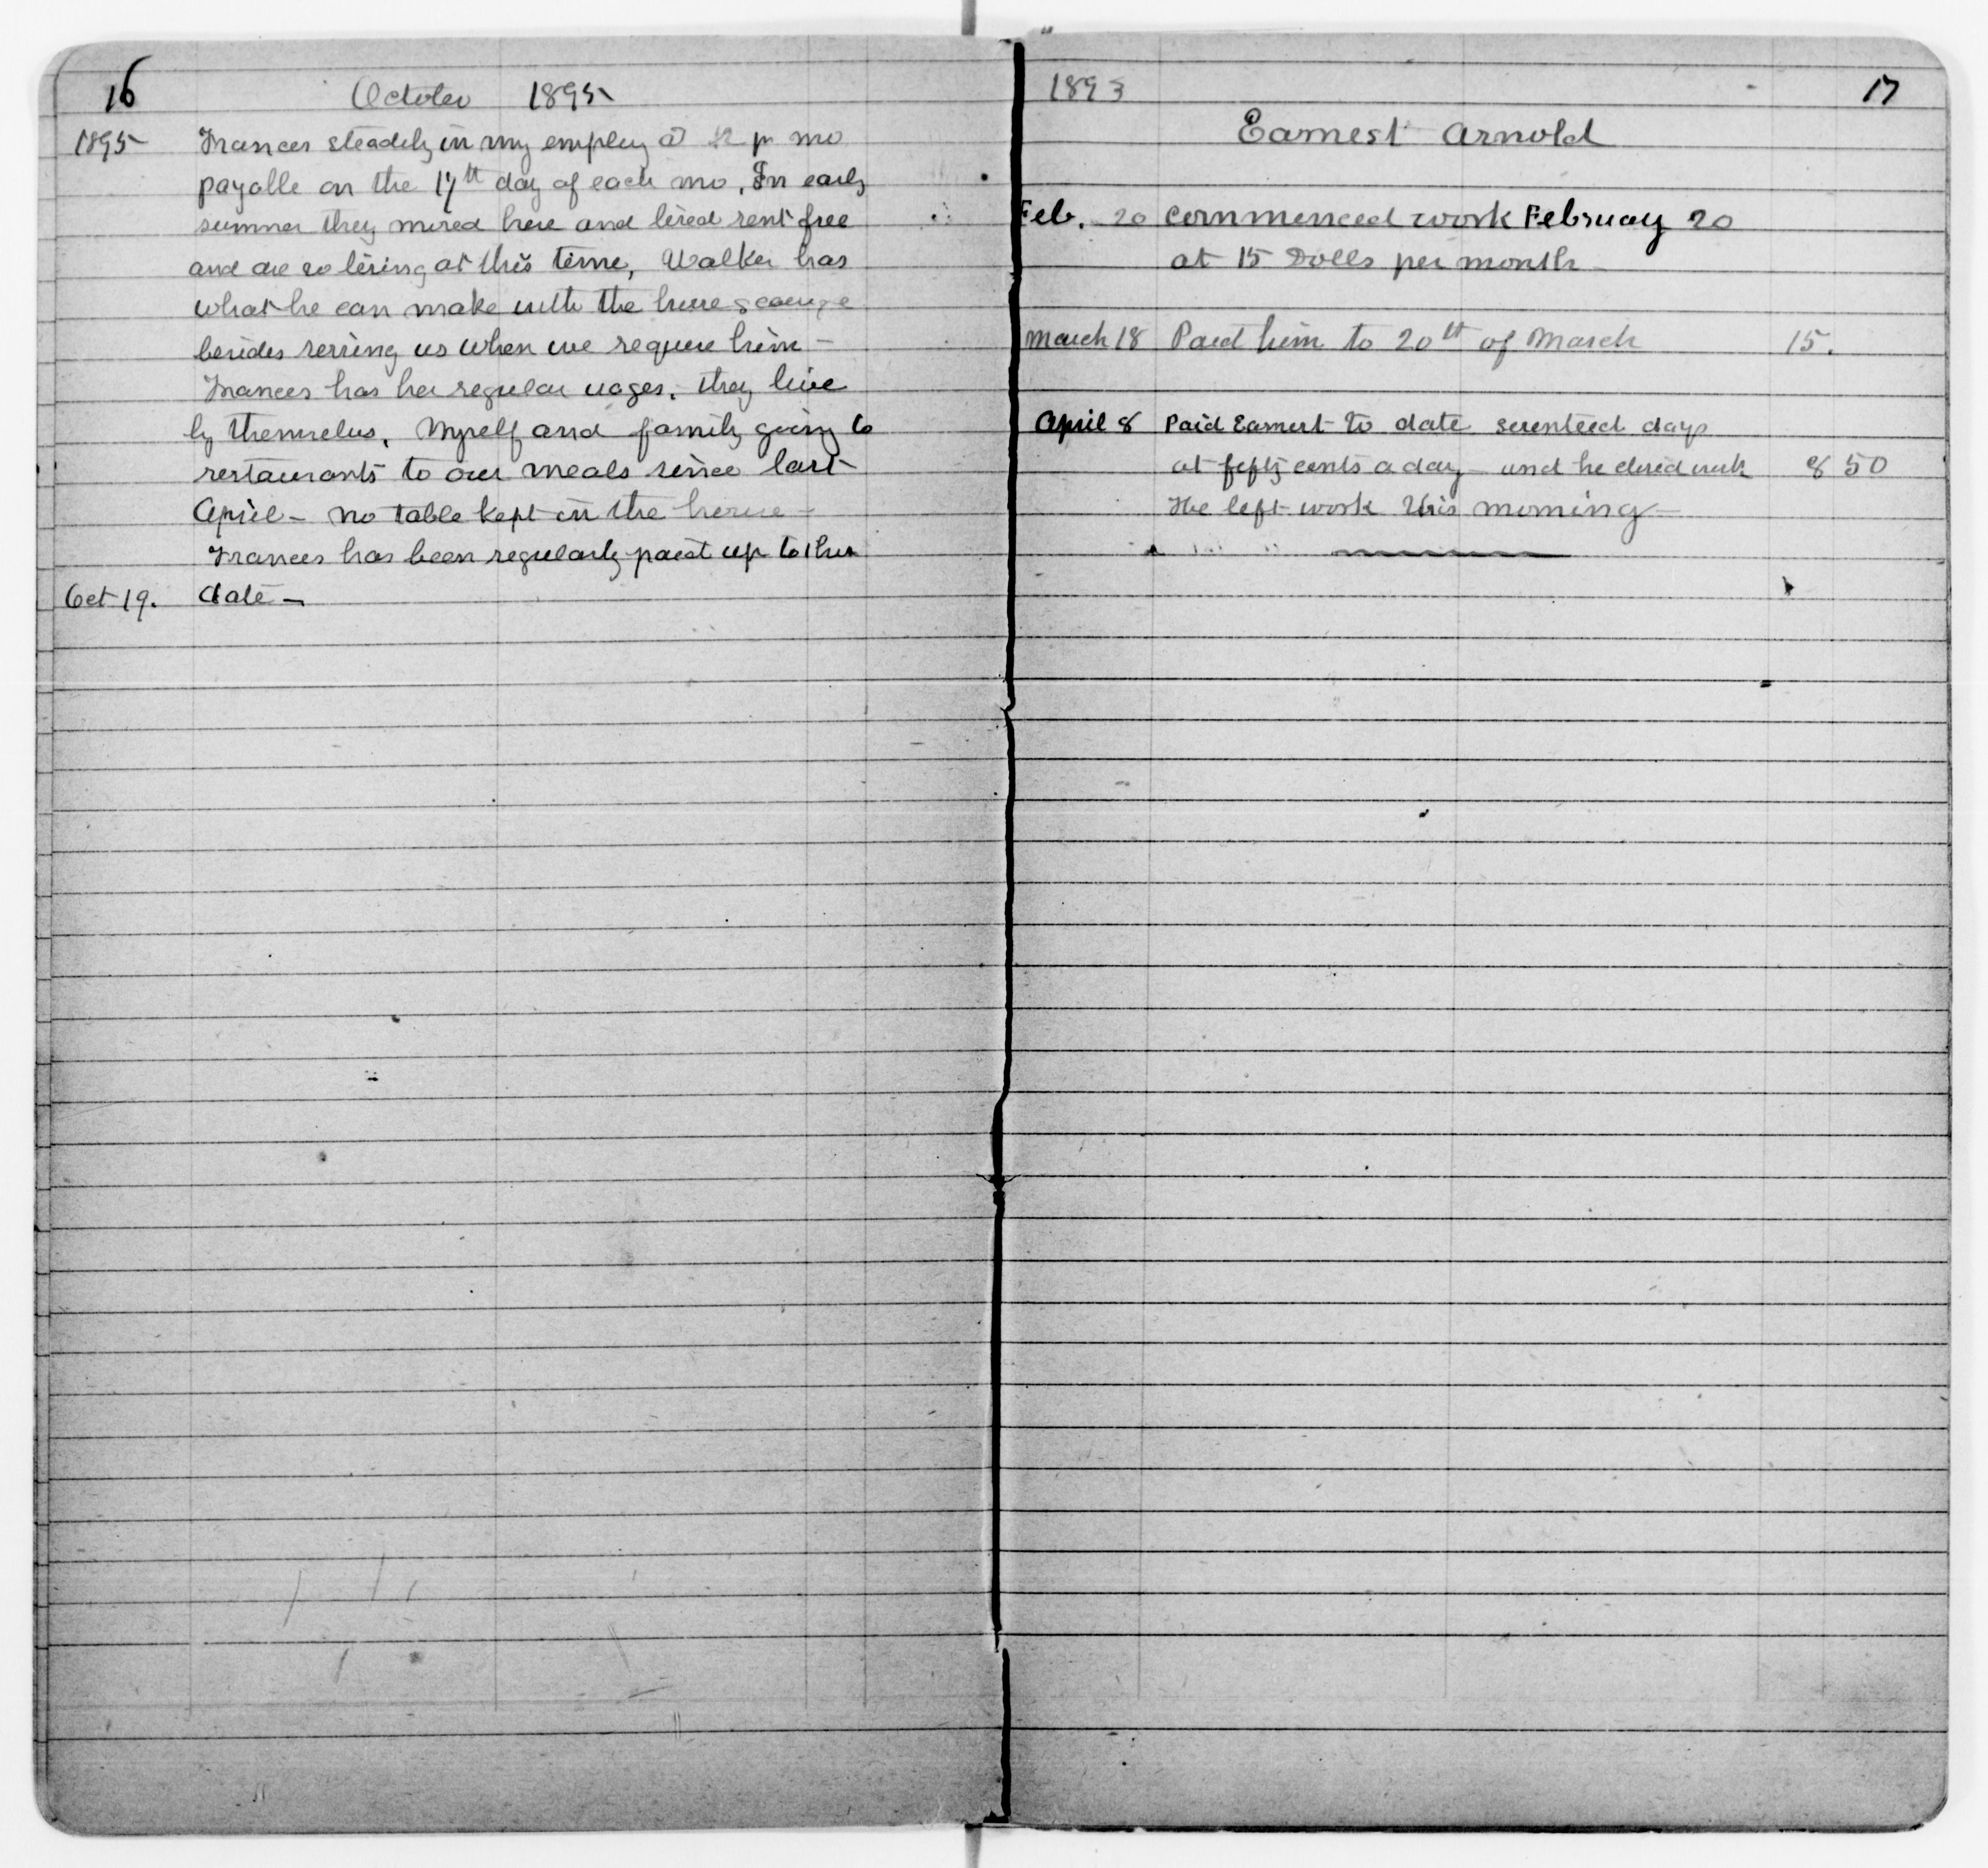 16
October 1895
1895 Frances steadily in my employ at 12 pr mo
payable on the 17th day of each mo. In early
summer they moved here and lived rent free
and are so living at this time, Walker has
what he can make with the horse &
besides serving us when we require him –
Frances has her regular wages. they live
by themselves. Myself and family going to
restaurants to our meals since last
April – no table kept in the house –
Frances has been regularly paid up to this
Oct 19. date –
1893 17
Earnest Arnold
Feb. 20 commenced work February 20
at 15 Dolls per month –
March 18 Paid him to 20th of March 15.
April 8 Paid Earnest to date seventeed days
at fifty cents a day – and he 8 50
He left work this morning –